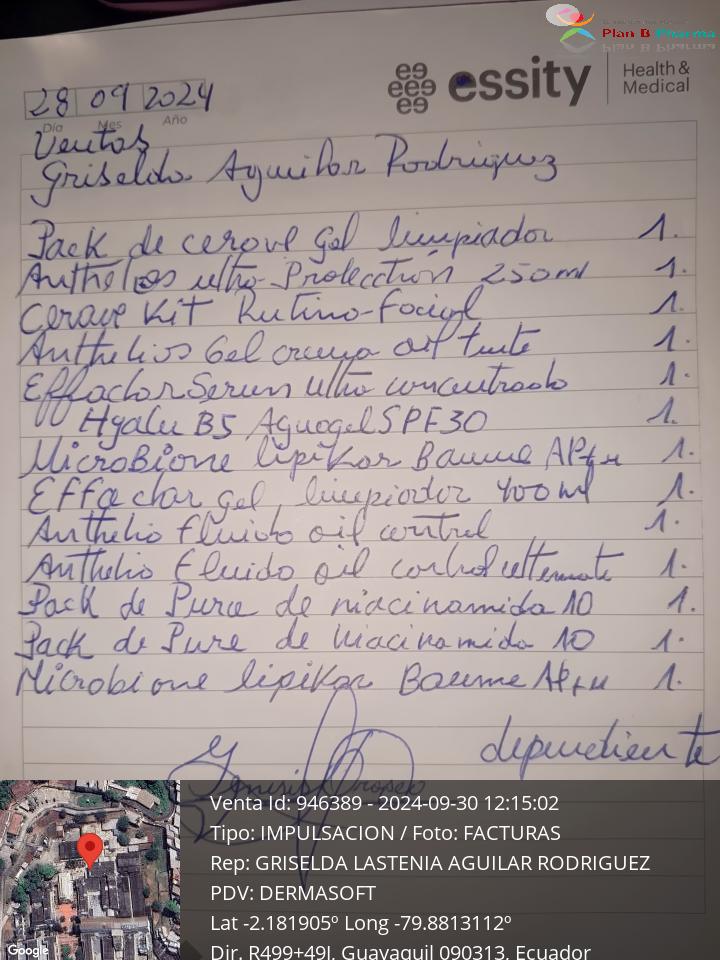 Plan B Pharma
essity
Health &
Medical
28 09 2024
Día Mes Año
Ventas
Griselda Aguilar Rodriguez
Pack de cerave gel limpiador 1.
Anthelios ultra-Protección 250ml 1.
Cerave Kit Rutina-Facial 1.
Anthelios Gel crema oil tinte 1.
Effaclar Serum ultra concentrado 1.
Hyalu B5 Aquagel SPF30 1.
MicroBione lipikar Baume AP+M 1.
Effaclar gel limpiador 400ml 1.
Anthelio fluido oil control 1.
Anthelio fluido oil control 1.
Pack de Pure de niacinamida 10 1.
Pack de Pure de niacinamida 10 1.
Microbione lipikar Baume AP+M 1.
dependiente
Venta Id: 946389 - 2024-09-30 12:15:02
Tipo: IMPULSACION / Foto: FACTURAS
Rep: GRISELDA LASTENIA AGUILAR RODRIGUEZ
PDV: DERMASOFT
Lat -2.181905º Long -79.8813112º
Dir. R499+49J, Guayaquil 090313, Ecuador
Google